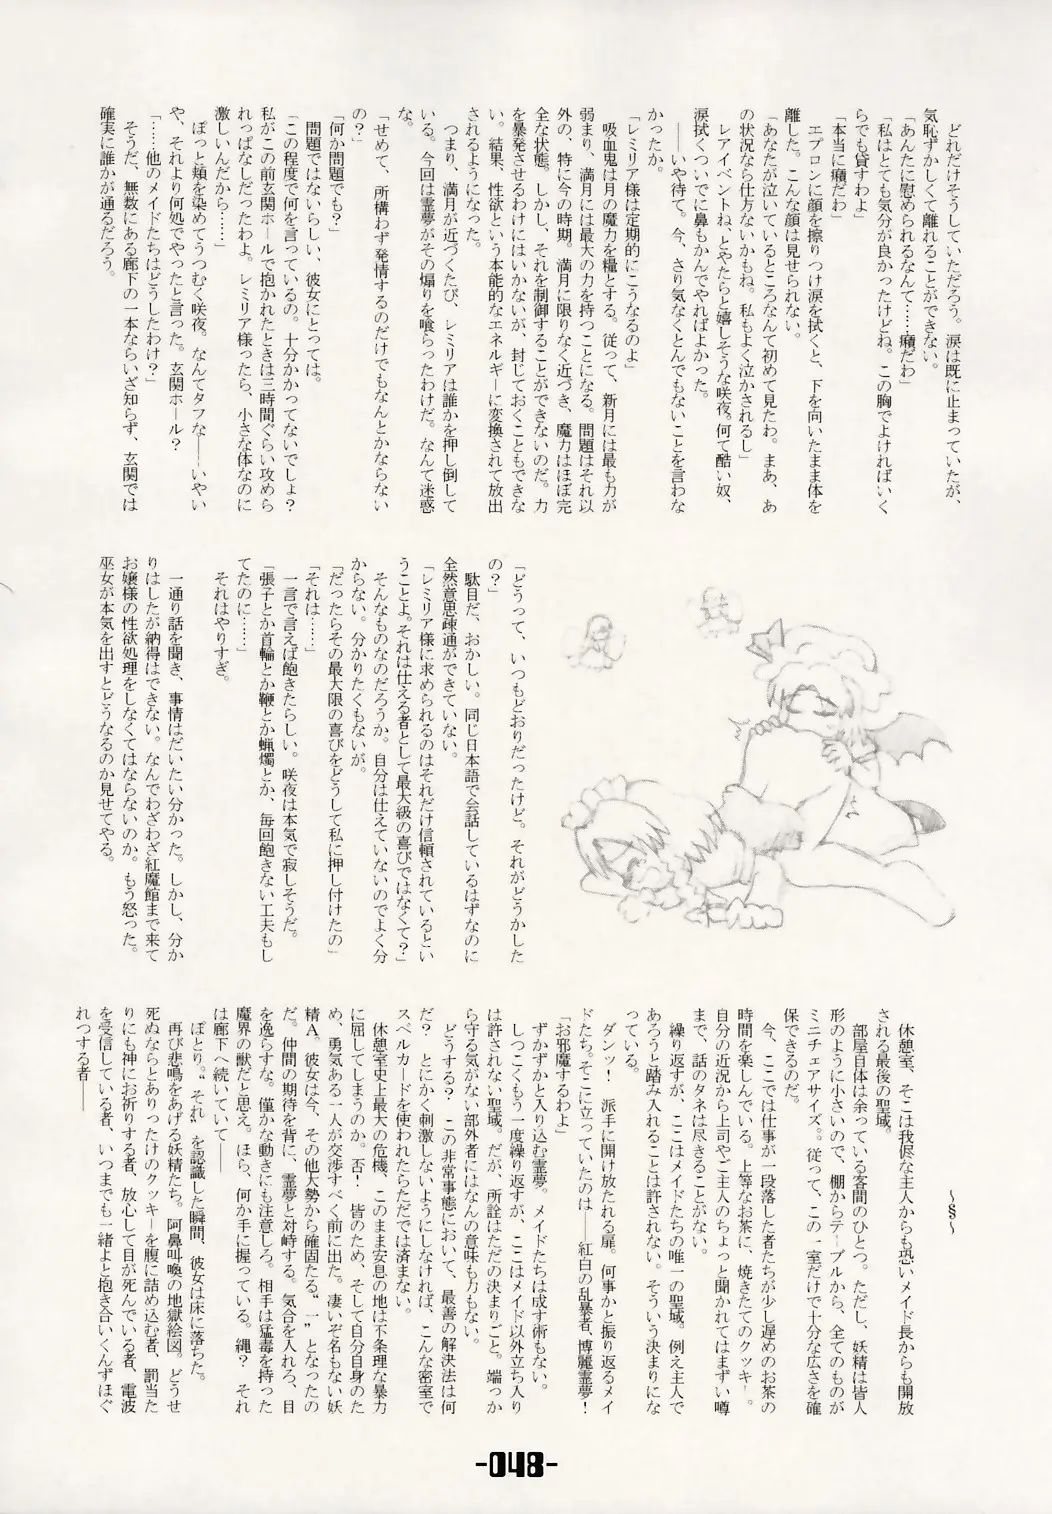 どれだけそうしていただろう。涙は既に止まっていたが、
気恥ずかしくて離れることができない。
「あんたに慰められるなんて……癪だわ」
「私はとても気分が良かったけどね。この胸でよければいく
らでも貸すわよ」
「本当に癪だわ」
　エプロンに顔を擦りつけ涙を拭くと、下を向いたまま体を
離した。こんな顔は見せられない。
「あなたが泣いているところなんて初めて見たわ。まあ、あ
の状況なら仕方ないかもね。私もよく泣かされるし」
　レアイベントね、とやたらと嬉しそうな咲夜。何て酷い奴、
涙拭くついでに鼻もかんでやればよかった。
　――いや待て。今、さり気なくとんでもないことを言わな
かったか。
「レミリア様は定期的にこうなるのよ」
　吸血鬼は月の魔力を糧とする。従って、新月には最も力が
弱まり、満月には最大の力を持つことになる。問題はそれ以
外の、特に今の時期。満月に限りなく近づき、魔力はほぼ完
全な状態。しかし、それを制御することができないのだ。力
を暴発させるわけにはいかないが、封じておくこともできな
い。結果、性欲という本能的なエネルギーに変換されて放出
されるようになった。
　つまり、満月が近づくたび、レミリアは誰かを押し倒して
いる。今回は霊夢がその煽りを喰らったわけだ。なんて迷惑
な。
「せめて、所構わず発情するのだけでもなんとかならない
の？」
「何か問題でも？」
　問題ではないらしい、彼女にとっては。
「この程度で何を言っているの。十分かかってないでしょ？
私がこの前玄関ホールで抱かれたときは三時間ぐらい攻めら
れっぱなしだったわよ。レミリア様ったら、小さな体なのに
激しいんだから……」
　ぽっと頬を染めてうつむく咲夜。なんてタフな――いやい
や、それより何処でやったと言った。玄関ホール？
「……他のメイドたちはどうしたわけ？」
　そうだ、無数にある廊下の一本ならいざ知らず、玄関では
確実に誰かが通るだろう。
「どうって、いつもどおりだったけど。それがどうかした
の？」
　駄目だ、おかしい。同じ日本語で会話しているはずなのに
全然意思疎通ができていない。
「レミリア様に求められるのはそれだけ信頼されているとい
うことよ。それは仕える者として最大級の喜びではなくて？」
　そんなものなのだろうか。自分は仕えていないのでよく分
からない。分かりたくもないが。
「だったらその最大限の喜びをどうして私に押し付けたの」
「それは……」
　一言で言えば飽きたらしい。咲夜は本気で寂しそうだ。
「張子とか首輪とか鞭とか蝋燭とか、毎回飽きない工夫もし
てたのに……」
　それはやりすぎ。

　一通り話を聞き、事情はだいたい分かった。しかし、分か
りはしたが納得はできない。なんでわざわざ紅魔館まで来て
お嬢様の性欲処理をしなくてはならないのか。もう怒った。
巫女が本気を出すとどうなるのか見せてやる。
～§～
　休憩室、そこは我侭な主人からも恐いメイド長からも開放
される最後の聖域。
　部屋自体は余っている客間のひとつ。ただし、妖精は皆人
形のように小さいので、棚からテーブルから、全てのものが
ミニチェアサイズ。従って、この一室だけで十分な広さを確
保できるのだ。
　今、ここでは仕事が一段落した者たちが少し遅めのお茶の
時間を楽しんでいる。上等なお茶に、焼きたてのクッキー。
自分の近況から上司やご主人のちょっと聞かれてはまずい噂
まで、話のタネは尽きることがない。
　繰り返すが、ここはメイドたちの唯一の聖域。例え主人で
あろうと踏み入れることは許されない。そういう決まりにな
っている。
　ダンッ！　派手に開け放たれる扉。何事かと振り返るメイ
ドたち。そこに立っていたのは――紅白の乱暴者、博麗霊夢！
「お邪魔するわよ」
　ずかずかと入り込む霊夢。メイドたちは成す術もない。
　しつこくもう一度繰り返すが、ここはメイド以外立ち入り
は許されない聖域。だが、所詮はただの決まりごと。端っか
ら守る気がない部外者にはなんの意味も力もない。
　どうする？　この非常事態において、最善の解決法は何
だ？　とにかく刺激しないようにしなければ、こんな密室で
スペルカードを使われたらただでは済まない。
　休憩室史上最大の危機、このまま安息の地は不条理な暴力
に屈してしまうのか。否！　皆のため、そして自分自身のた
め、勇気ある一人が交渉すべく前に出た。凄いぞ名もない妖
精Ａ。彼女は今、その他大勢から確固たる“一”となったの
だ。仲間の期待を背に、霊夢と対峙する。気合を入れろ、目
を逸らすな。僅かな動きにも注意しろ。相手は猛毒を持った
魔界の獣だと思え。ほら、何か手に握っている。縄？　それ
は廊下へ続いていて――
　ぽとり。“それ”を認識した瞬間、彼女は床に落ちた。
　再び悲鳴をあげる妖精たち。阿鼻叫喚の地獄絵図。どうせ
死ぬならとありったけのクッキーを腹に詰め込む者、罰当た
りにも神にお祈りする者、放心して目が死んでいる者、電波
を受信している者、いつまでも一緒よと抱き合いくんずほぐ
れつする者――
-048-